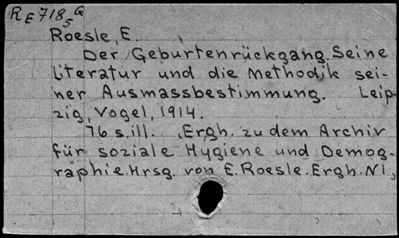 RE718sG
Roesle, E.
Der Geburtenrückgang. Seine
Literatur und die Methodik sei-
ner Ausmassbestimmung. Leip-
zig, Vogel, 1914.
76 s.ill. Ergh. zu dem Archiv
für soziale Hygiene und Demog-
raphie. Hrsg. von E. Roesle. Ergh. N1,